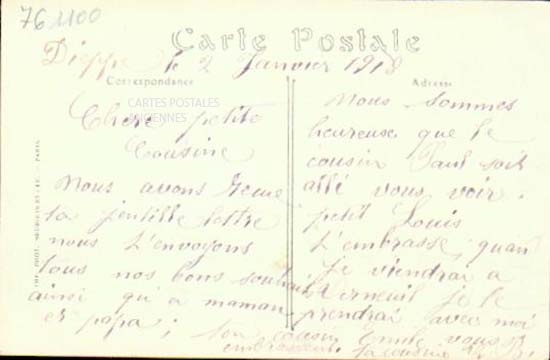 76 1100
Carte Postale
Dieppe le 2 Janvier 1918
Correspondance
Adresse
CARTES POSTALES
ANCIENNES
Chère petite
Cousine
Nous avons reçue
ta jentille lettre
nous t'envoyons
tous nos bons souhaits
ainsi qu'a maman
et papa;
Nous sommes
heureuse que le
cousin Paul soit
allé vous voir.
petit Louis
t'embrasse, quan
je viendrai a
Verneuil je le
prendrai avec moi
ton cousin Emile vous
embrassent. ta cousine